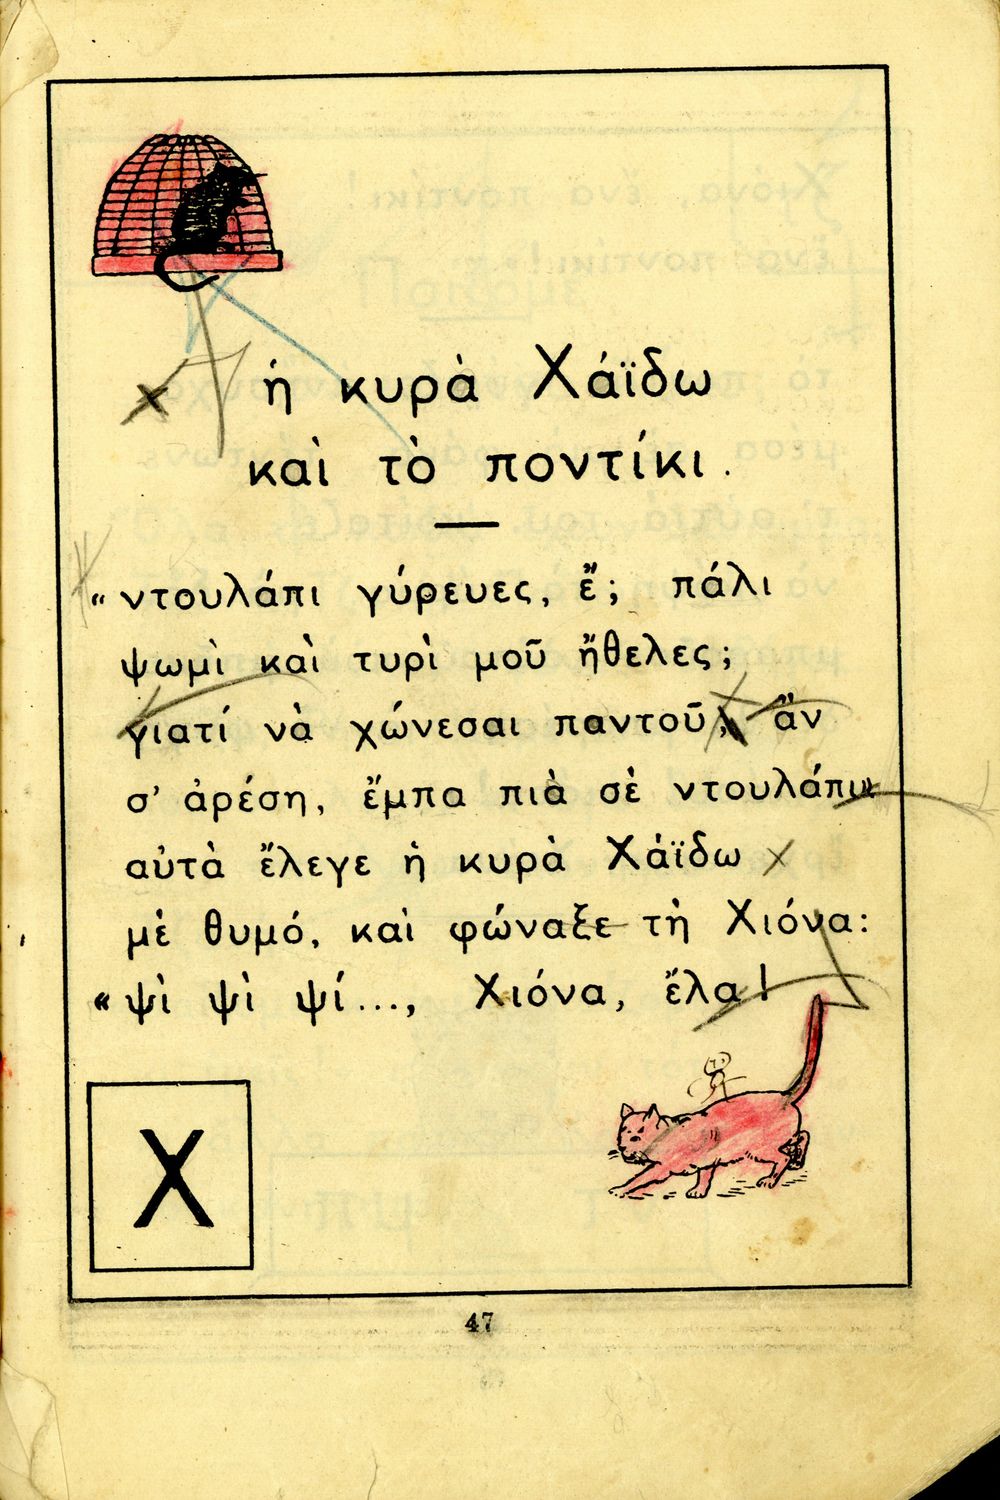 ἡ κυρὰ Χάϊδω
καὶ τὸ ποντίκι.
« ντουλάπι γύρευες, ἔ; πάλι
ψωμὶ καὶ τυρὶ μοῦ ἤθελες;
γιατί νὰ χώνεσαι παντοῦ; ἂν
σ' ἀρέση, ἔμπα πιὰ σὲ ντουλάπι»
αὐτὰ ἔλεγε ἡ κυρὰ Χάϊδω
μὲ θυμό, καὶ φώναξε τὴ Χιόνα:
« ψὶ ψὶ ψί..., Χιόνα, ἔλα!
Χ
47